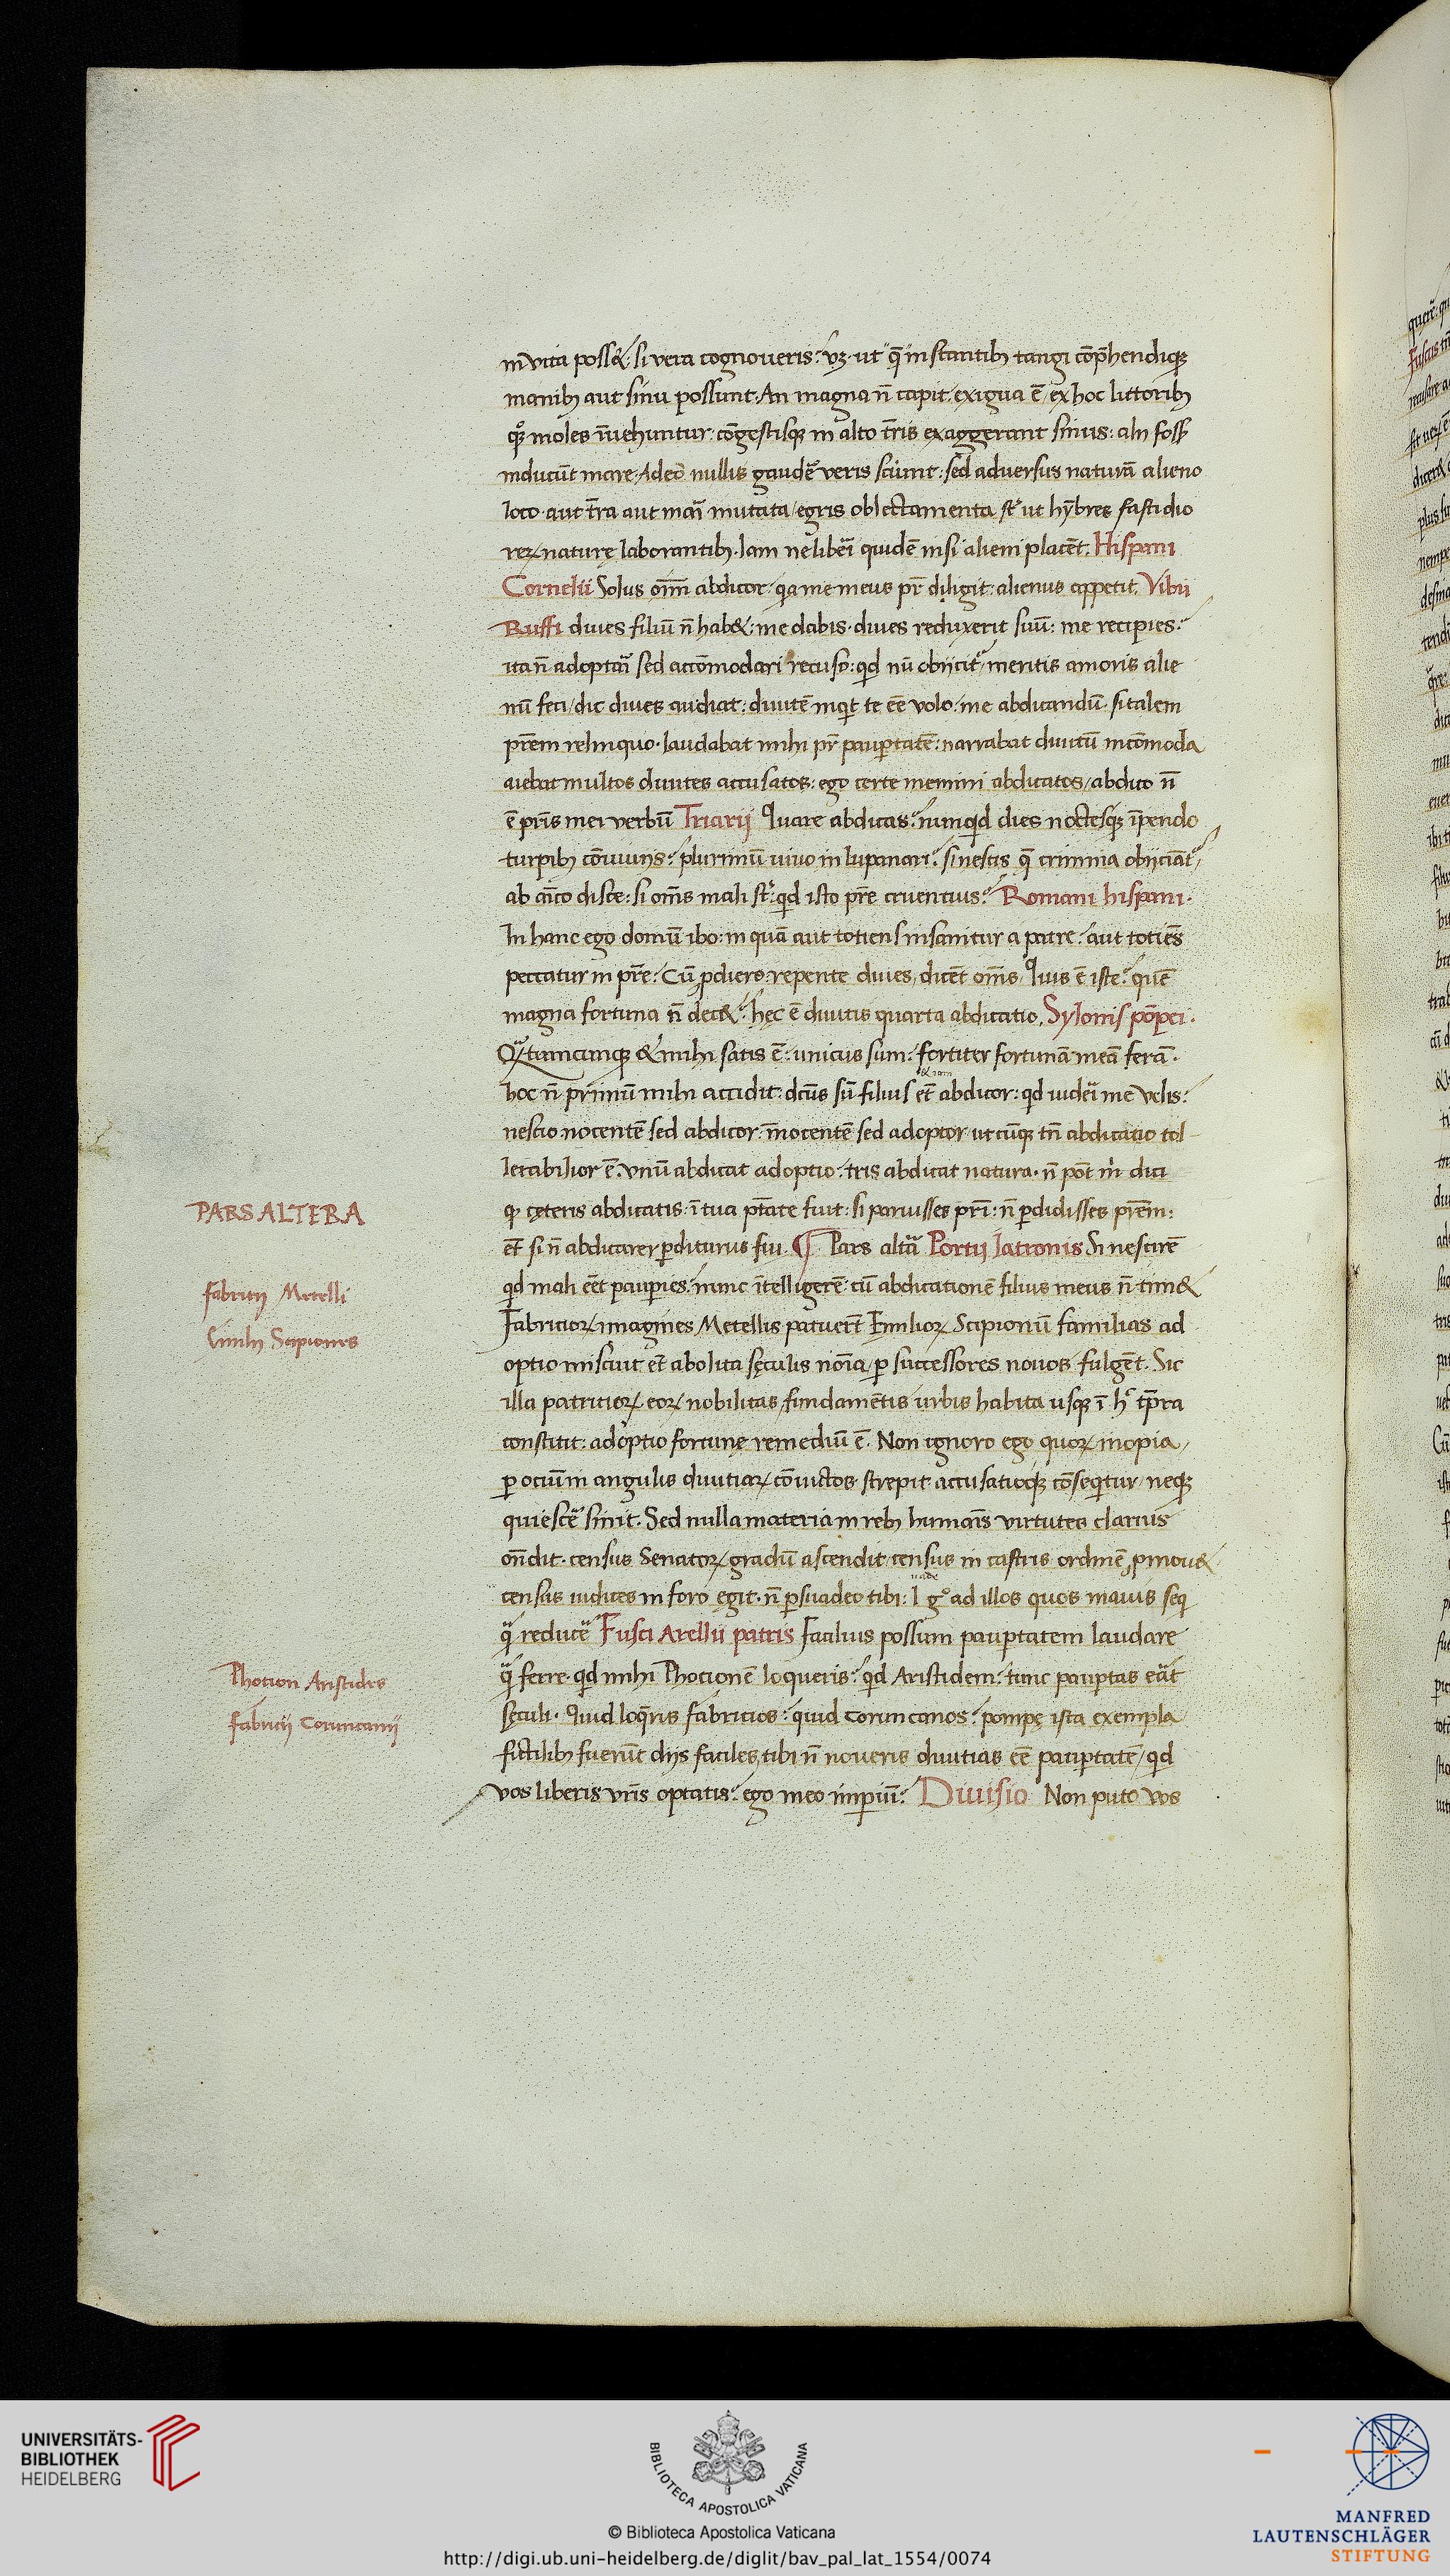 in vita poss&. si vera cognoveris: vꝫ. ut q̄ instantibꝫ tangi cōp̄hendiqꝫ
manibꝫ aut sinu possunt. An magna n̄ capit exigua ē ex hoc littoribꝫ
moles īvehuntur: cōgestisqꝫ in alto t̄ris exaggerant sinus: alii foss
inducūt mare. Adeo nullis gaudē veris sciunt: sed adversus naturā alieno
loco. aut t̄ra aut maī mutata egris oblectamenta st ut hybres fastidio
reꝝ naturę laborantibꝫ. Iam ne libeī quidē nisi alieni placēt. Hispani
Cornelii Solus om̄m abdicor qa me meus pr̄ diligit: alienus appetit. Vibii
Ruffi dives filiū n̄ hab&: me dabis. dives reduxerit suū: me recipies.
ita n̄ adoptaī sed accōmodari recuso: qd nū obiicit meritis amoris alie
nū feci dic dives audiat: divitē inqt te eē volo. me abdicandū. si talem
pr̄em relinquo. laudabat mihi pr̄ paupertatē: narrabat divitū incōmoda
aiebat multos divites accusatos: ego certe memini abdicatos, abdico n̄
ē pr̄is mei verbū Triarij Quare abdicas? nunqd dies noctesqꝫ īpendo
turpibꝫ cōviviis? plurimū vivo in lupanari? si nescis q̄ crimina obiiciant
ab aīco disce: si om̄s mali st: qd isto pr̄e cruentius? Romani hispani.
In hanc ego domū ibo: in quā aut totiens insanitur a patre? aut totiēs
peccatur in pr̄e? Cū pdiero: repente dives, dicēt om̄s, Quis ē iste? quē
magna fortuna n̄ dec&? hęc ē divitis quarta abdicatio. Sylonis pōpei.
Qtumcunqꝫ & mihi satis ē: unicus sum: fortiter fortunā meā ferā.
&iam
hoc n̄ primū mihi accidit: dcūs sū filius et̄ abdicor: qd videī me velis?
nescio nocentē sed abdicor: īnocentē sed adoptor utcūqꝫ tn̄ abdicatio tol
lerabilior ē. unū abdicat adoptio: tris abdicat natura. n̄ pōt m dici
ꝙ cęteris abdicatis. ī tua ptāte fuit: si paruisses pr̄i: n̄ pdidisses pr̄em:
et̄ si n̄ abdicarer pditurus fui. ¶ Pars altā Portii latronis Si nescirē
qd mali eēt paupies: nunc ītelligerē: cū abdicationē filius meus n̄ tim&
Fabricioꝝ imagines Metellis patuert̄ Emilioꝝ Scipionū familias ad
optio miscuit et̄ abolita sęculis noīa p successores novos fulgēt. Sic
illa patricioꝝ eoꝝ nobilitas fundamētis urbis habita usqꝫ ī h tp̄ra
constitit: adoptio fortunę remediū ē. Non ignoro ego quoꝝ inopia,
p ociūm angulis divitiaꝝ cōvictos strepit accusatioqꝫ cōseqtur neqꝫ
quiescē sinit. Sed nulla materia in rebꝫ humaīs virtutes clarius
on̄dit. census Senatoꝝ gradū ascendit, census in castris ordinē pmov&
census iudices in foro egit. n̄ psuadeo tibi: l gᵒ ad illos quos mavis seq
q reducē Fusci Arellii patris Facilius possum paupertatem laudare
q ferre. qd mihi Phocionē loqueris? qd Aristidem? tunc paupertas eāt
sęculi. Quid loqris fabricios? quid coruncanos? pompę ista exempla
fictilibꝫ fuerūt diis faciles, tibi n̄ noveris divitias eē paupertatē, qd
vos liberis vr̄is optatis? ego meo imperiū? Divisio Non puto vos
PARS ALTERA
fabricij Metelli
Emilij Scipiones
Phocion Aristides
fabricij Coruncanij
UNIVERSITÄTS-
BIBLIOTHEK
HEIDELBERG
BIBLIOTECA APOSTOLICA VATICANA
© Biblioteca Apostolica Vaticana
http://digi.ub.uni-heidelberg.de/diglit/bav_pal_lat_1554/0074
MANFRED
LAUTENSCHLÄGER
STIFTUNG